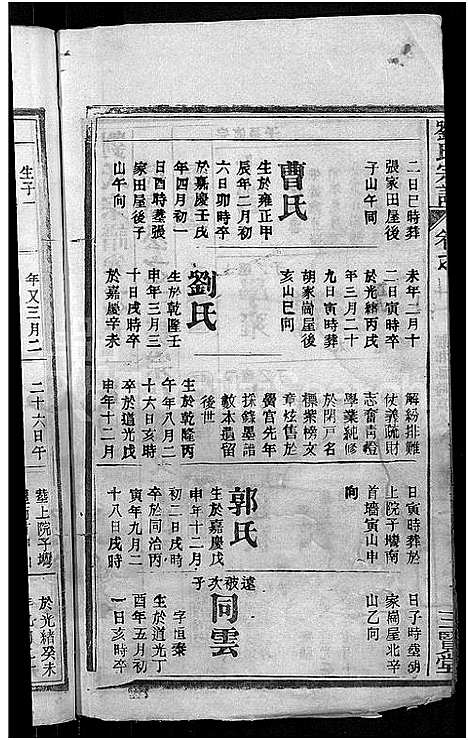 劉氏宗譜
卷
堂
二日巳時葬
張家田屋後
子山午向
曹氏
生於雍正甲
辰年二月初
六日卯時卒
於嘉慶壬戌
年四月初一
日酉時葬張
家田屋後子
山午向
未年二月十
二日寅時卒
於光緒丙戌
年三月二十
九日寅時葬
胡家崗屋後
亥山巳向
劉氏
生於乾隆壬
申年三月三
十日戌時卒
於嘉慶辛未
解紛排難
仗義疏財
志奮青燈
學業純修
於閉戶名
標紫榜文
章炫售於
黌宮先年
採錄墨譜
數本遺留
後世
生於乾隆丙
午年八月二
十六日亥時
卒於道光戊
申年十二月
日寅時葬於
上院子塆南
首墻寅山申
向
郭氏
生於嘉慶戊
申年十二月
初二日戌時
卒於同治丙
寅年九月二
十八日戌時
日子時葬胡
家崗屋北辛
山乙向
遠被次子
同雲
字恒泰
生於道光丁
酉年五月初
一日亥時卒
生子
年又三月二
二十六日午
葬上院子塆
於光緒癸未